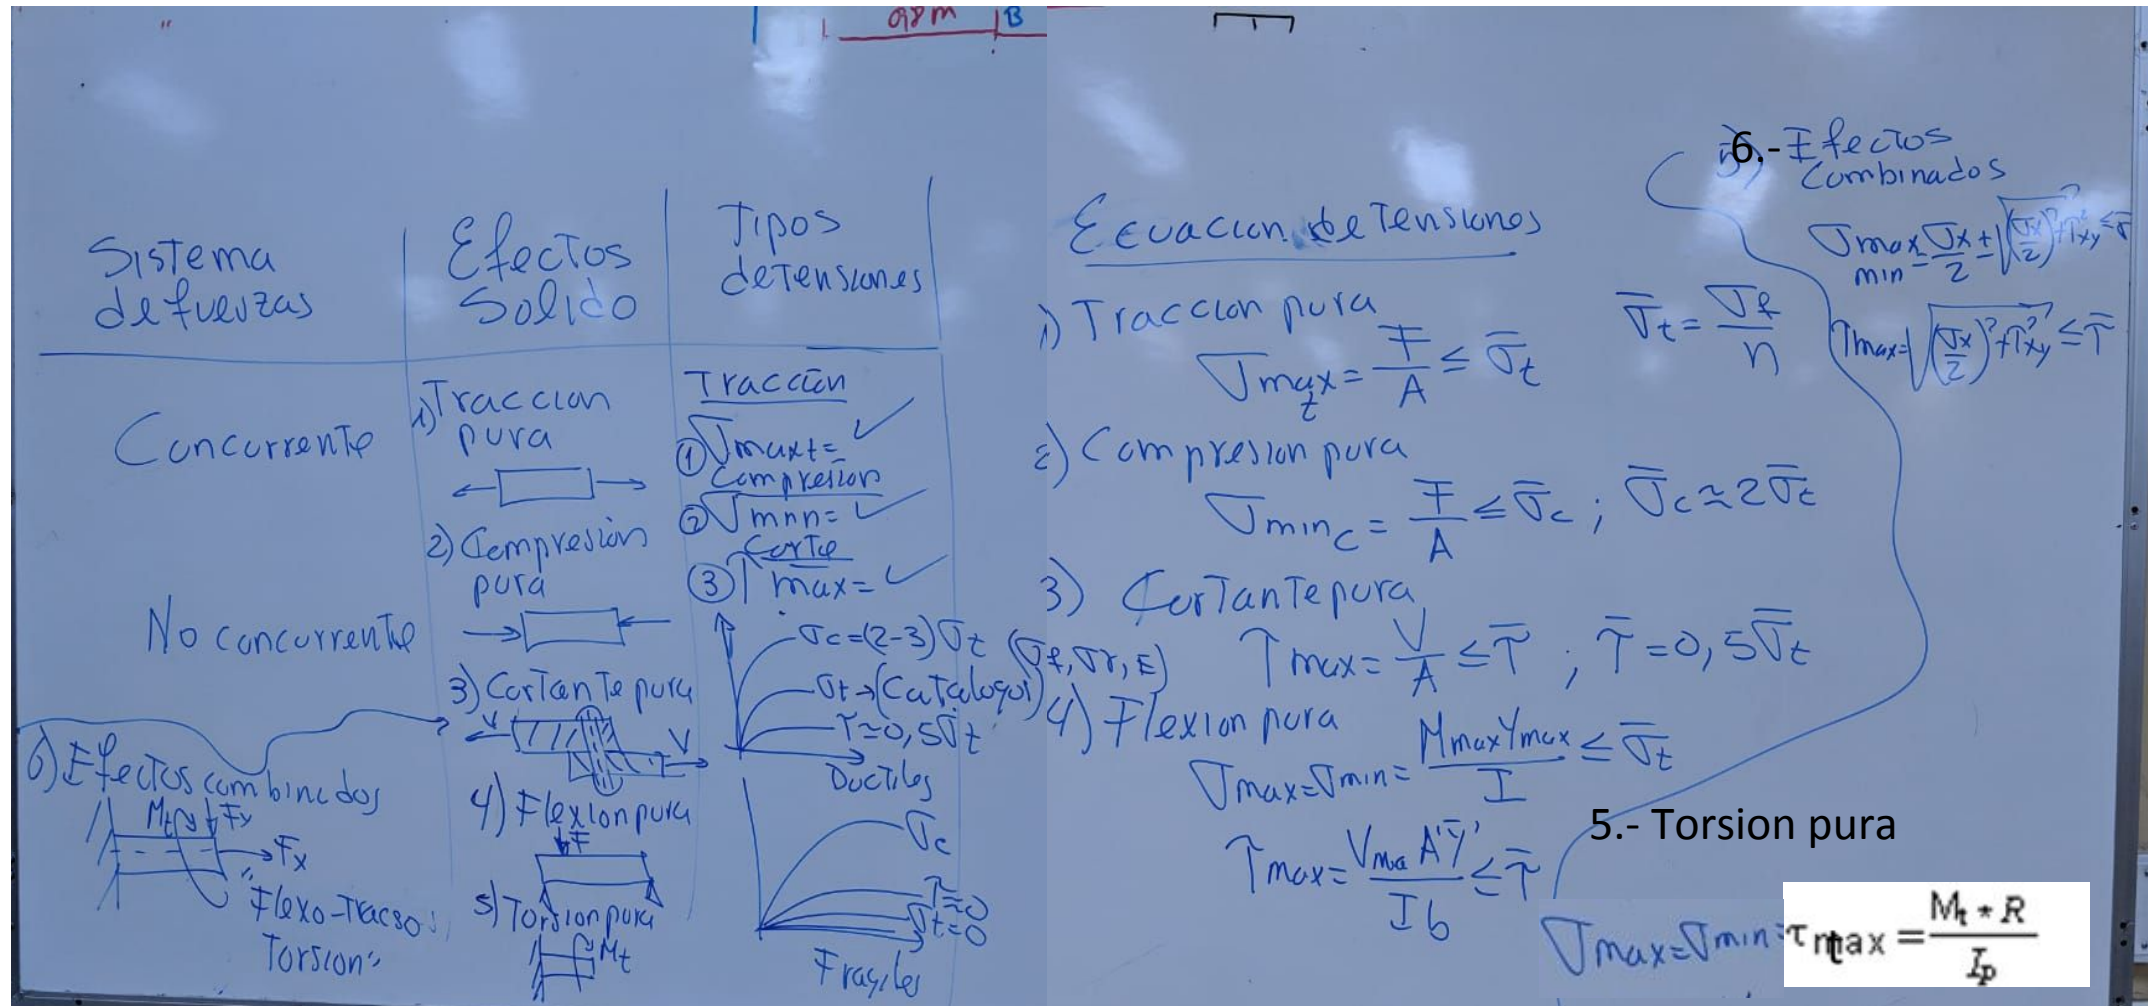 0,8m B
Sistema
de fuerzas
Efectos
Solido
Tipos
de tensiones
Concurrente
No concurrente
6) Efectos combinados
Mt Fy
Fx
"Flexo-Tracso
Torsion"
1) Traccion
pura
2) Compresión
pura
3) Cortante pura
V
V
4) Flexion pura
F
5) Torsion pura
Mt
Tracción
① σmaxt= ✓
Compresion
② σmnn= ✓
Corte
③ τmax= ✓
σc=(2-3)σt
σt→(Catalogui) (σf, σr, E)
τ≃0,5σt
Ductiles
σc
τ≃0
σt=0
Fragiles
Ecuacion de Tensiones
1) Traccion pura
σmaxt = F/A ≤ σ̄t
σ̄t = σf/n
2) Compresion pura
σminc = F/A ≤ σ̄c ; σ̄c ≃ 2σ̄t
3) Cortante pura
τmax = V/A ≤ τ̄ ; τ̄ = 0,5σ̄t
4) Flexion pura
σmax=σmin= Mmax Ymax/I ≤ σ̄t
τmax= Vma A'ȳ'/Ib ≤ τ̄
5.- Torsion pura
σmax=σmin=
τmax = Mt * R / Ip
6.- Efectos
Combinados
σmax min = σx/2 ± √((σx/2)²+τ²xy) ≤ σ̄
τmax=√((σx/2)²+τ²xy) ≤ τ̄